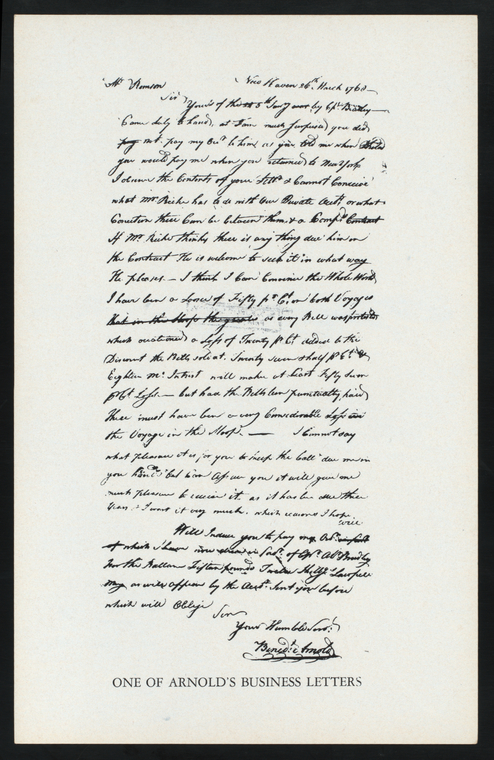 Mr Remson New Haven 26th March 1768
Sir
Yours of the 5th by Cpt Bradley
Came duly to hand, as I am much Surprised you did
not pay my Ord to him, as you told me when
you would pay me when you returned to New York
I observe the Contents of your Lettr & Cannot Conceive
what Mr Riche has to do with Our Private Acct, or what
Conection there Can be between them & a Compd Contract
If Mr Riche thinks there is any thing due him on
the Contract He is welcome to seek it in what way
He pleases — I think I Can Convince the Whole World
I have been a Loser of Fifty pr Ct on both Voyages
that in the Sloop as every Bill was protested
which occationed a Loss of Twenty pr Ct added to the
Discount the Bills sold at. Twenty seven & half pr Ct &
Eighteen Mo Intrest will make at Least Fifty
pr Ct Loss — but had the Bills been punctually paid
there must have been a very Considerable Loss on
the Voyage in the Sloop — I Cannot say
what pleasure it is for you to keep the Ball due me in
you hands but can Assure you it will give me
much pleasure to receive it. as it has been due three
Years, & I want it very much. which reasons I hope
will
Will Induce you to pay my Ord
of which I have in favr of Cpt Abm Bradley
for the Ballance Fifteen pounds Twelve Shillgs Lawfull
My as will Appear by the Acct Sent you before
which will Oblige
Sir
Your Humble Servt
Benedt Arnold
ONE OF ARNOLD'S BUSINESS LETTERS